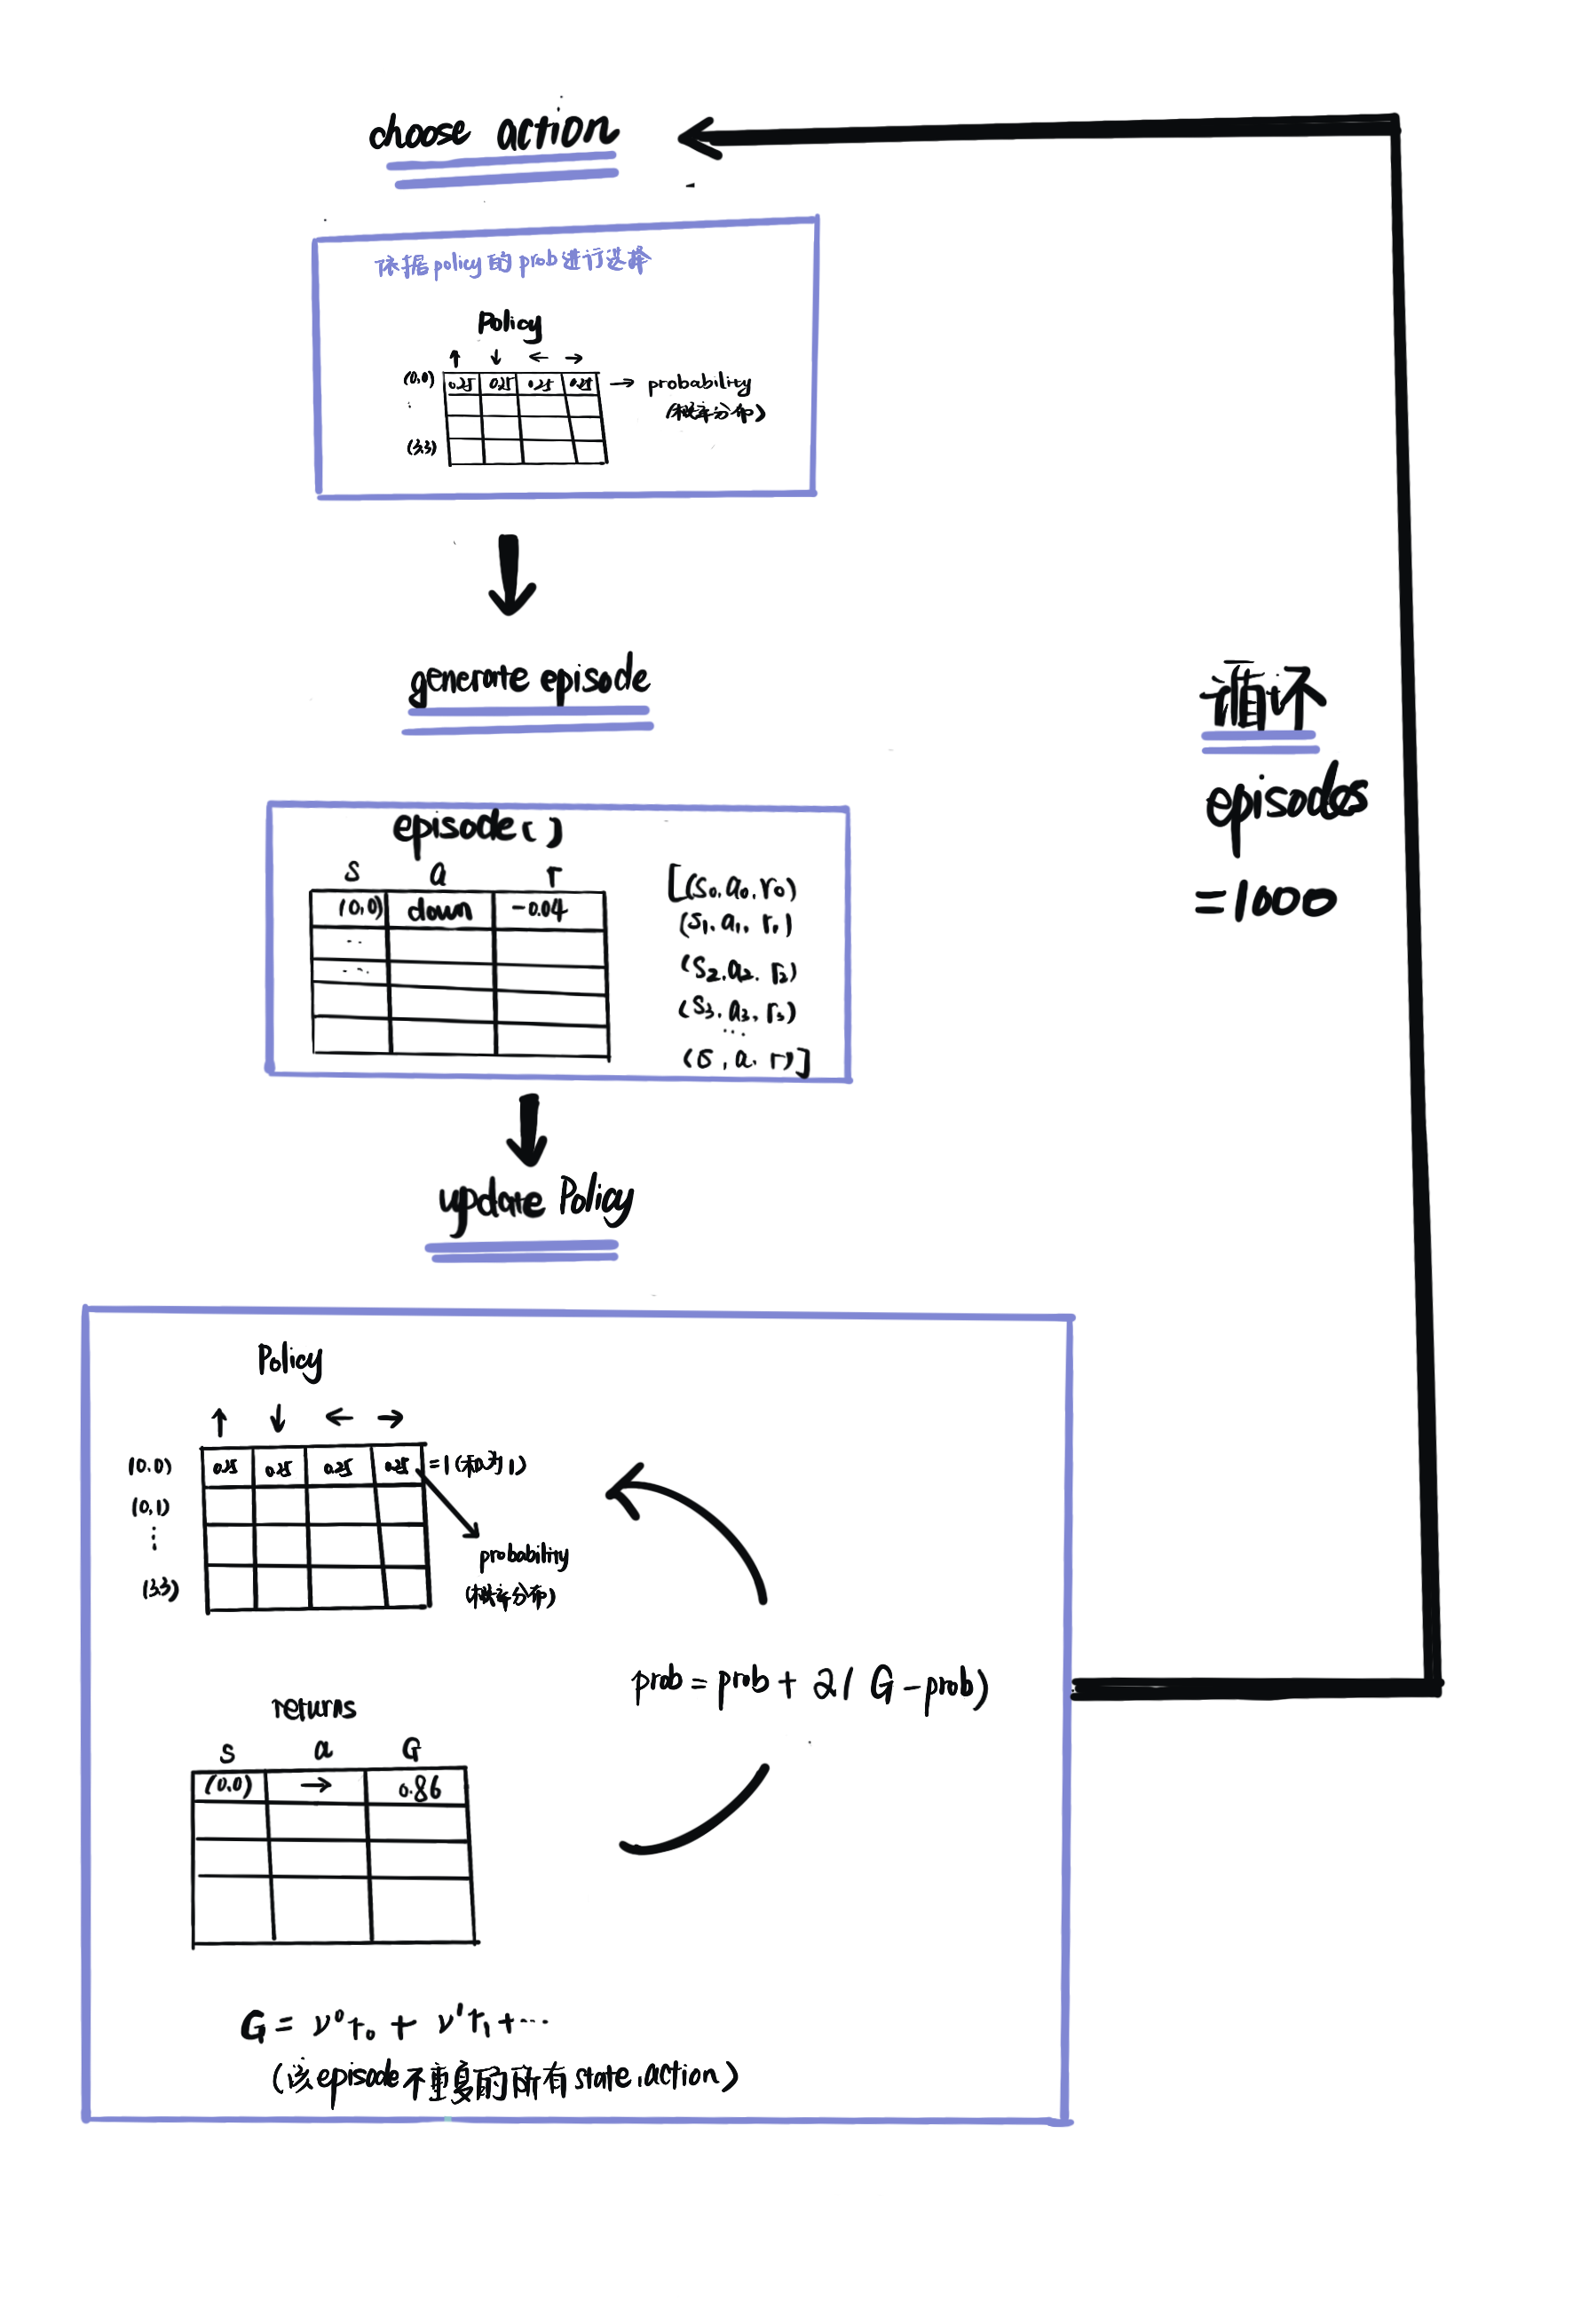 choose action
依据policy的prob进行选择
Policy
↑ ↓ ← →
(0,0) 0.25 0.25 0.25 0.25 → probability
(概率分布)
(3,3)
generate episode
循环
episodes
=1000
episode[ ]
s a r
(0,0) down -0.04
[(s₀,a₀,r₀)
(s₁,a₁,r₁)
(s₂,a₂,r₂)
(s₃,a₃,r₃)
...
(s,a,r)]
update Policy
Policy
↑ ↓ ← →
(0,0) 0.25 0.25 0.25 0.25 =1(和为1)
(0,1)
⋮
probability
(3,3)
(概率分布)
prob = prob + 2( G - prob)
returns
s a G
(0,0) → 0.86
G = ν⁰r₀ + ν¹r₁ + ...
(该episode不重复的所有state,action)